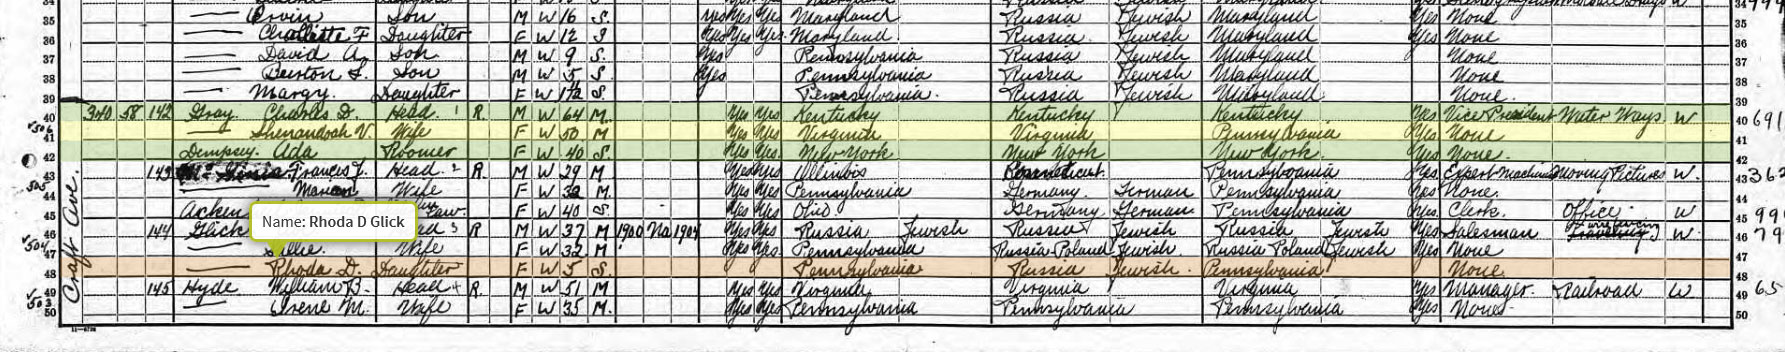 Ervin Son M W 16 S. yes Yes Yes Maryland Russia Jewish Maryland Yes None 35
36 Charlotte F Daughter F W 12 S Yes Yes Yes Maryland. Russia. Jewish Maryland Yes None 36
37 David A. Son M W 9 S. Yes Pennsylvania Russia Jewish Maryland None 37
38 Son M W 5 S. Yes Pennsylvania Russia Jewish Maryland None 38
39 Margy. Daughter F W S. Pennsylvania. Russia Jewish Maryland None. 39
340 58 142 Gray. Charles D. Head. 1 R. M W 64 M. Yes Yes Kentucky Kentucky Kentucky Yes Vice President Water Ways W 40 691
41 Shenandoah V. Wife F W 50 M Yes Yes Virginia Virginia Pennsylvania Yes None 41
42 Dempsey. Ada Roomer F W 40 S. Yes Yes New York New York New York Yes None. 42
43 143 Francis J. Head 2 R. M W 29 M Yes Yes Illinois Pennsylvania Yes Moving Pictures W. 43 362
44 Wife F W 32 M Yes Yes Pennsylvania Germany German Pennsylvania Yes None. 44
45 F W 40 S. Yes Yes Ohio Germany German Pennsylvania Yes Clerk. Office W 45
46 144 Glick 3 R M W 37 M 1900 Na 1904 Yes Yes Russia Jewish Russia Jewish Russia Jewish Yes Salesman W. 46 79
47 Wife F W 32 M Yes Yes Pennsylvania Russia Poland Jewish. Russia Poland Jewish Yes None 47
48 Rhoda D. Daughter F W 5 S. Pennsylvania Russia Jewish. Pennsylvania None 48
49 145 Hyde William B. Head 4 R. M W 51 M Yes Yes Virginia Virginia Virginia Yes Manager. Railroad W 49 65
50 Irene M. Wife F W 35 M. Yes Yes Pennsylvania Pennsylvania Pennsylvania Yes None 50
Craft Ave.
Name: Rhoda D Glick